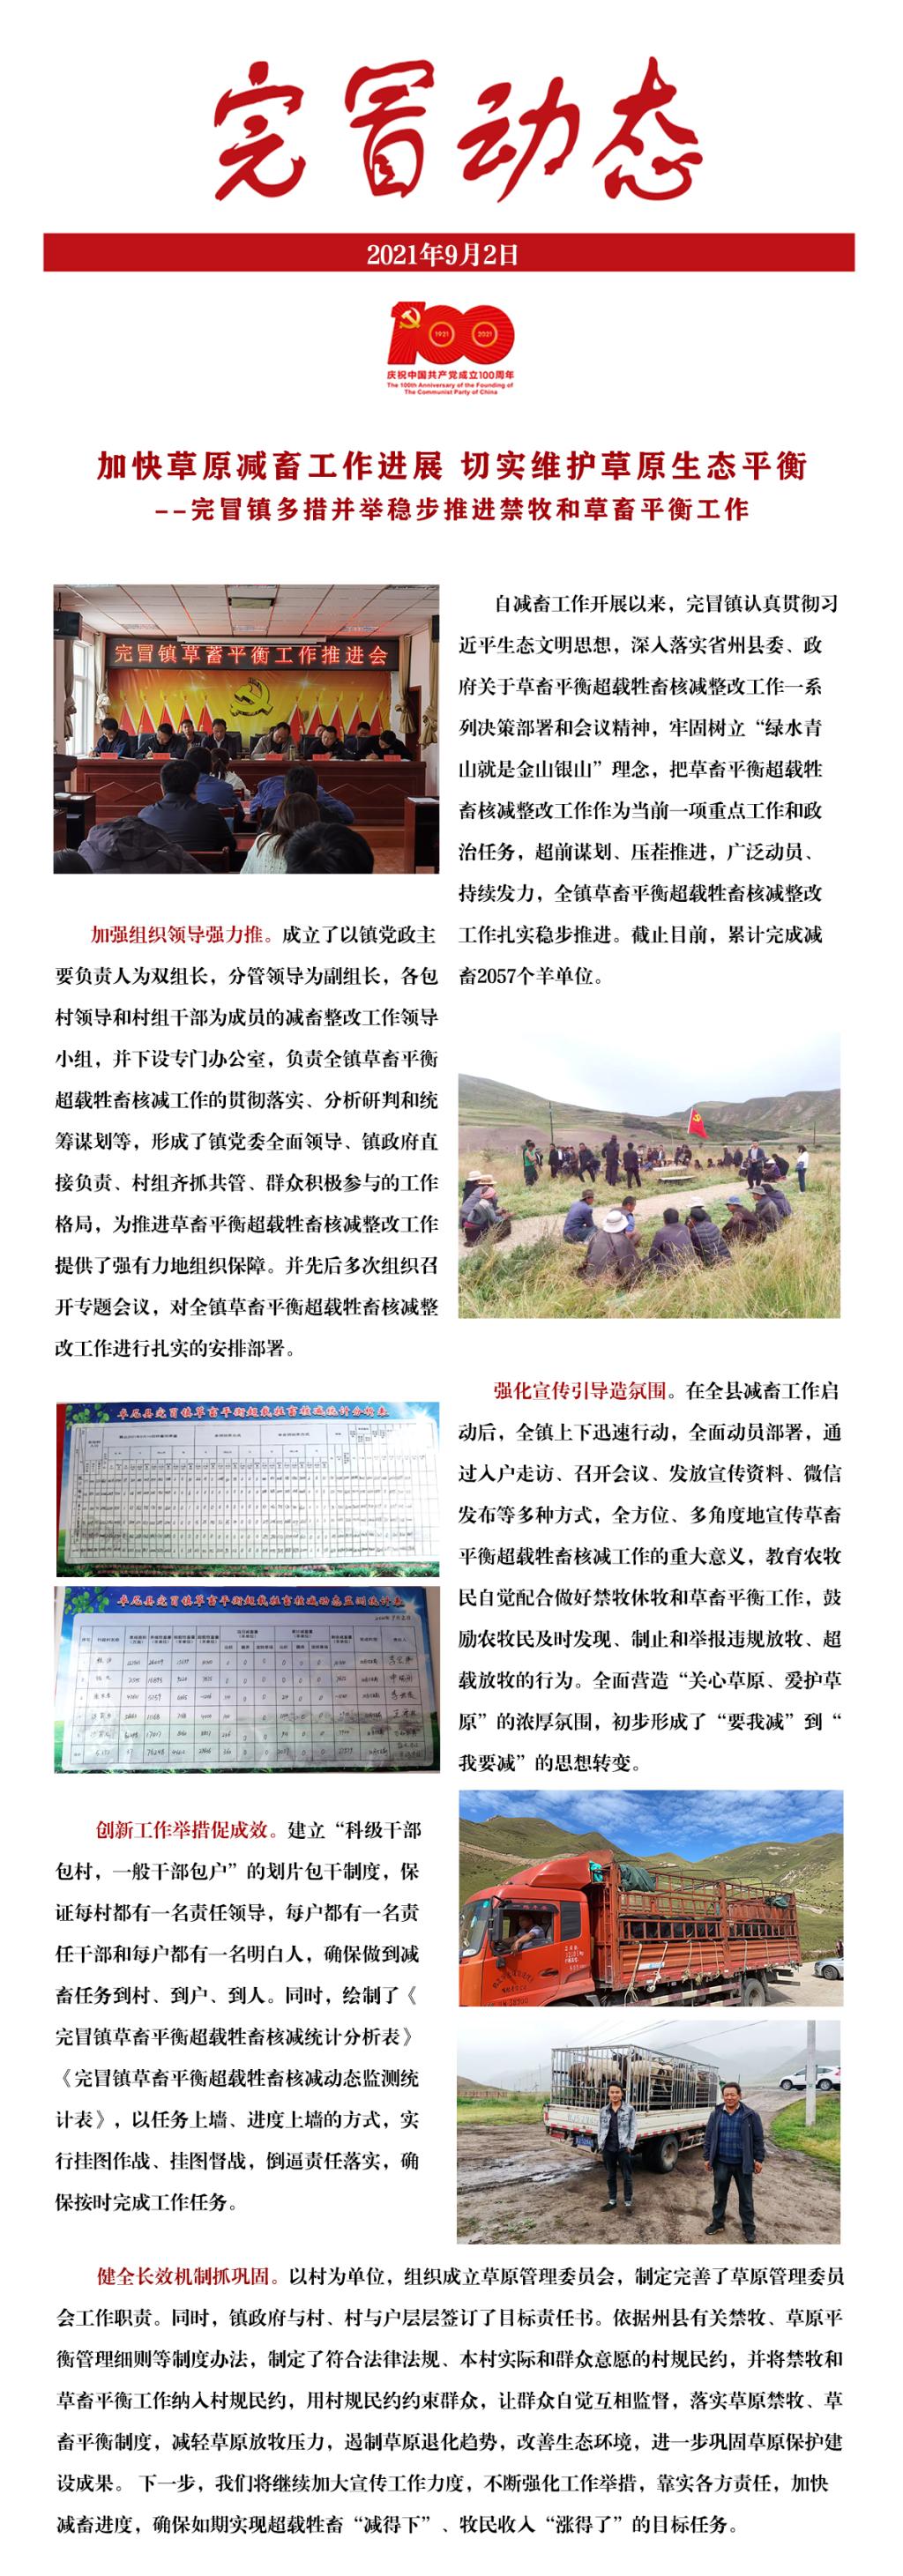 完冒动态
2021年9月2日
1921
2021
庆祝中国共产党成立100周年
The 100th Anniversary of the Founding of
The Communist Party of China
加快草原减畜工作进展 切实维护草原生态平衡
--完冒镇多措并举稳步推进禁牧和草畜平衡工作
完冒镇草蓄平衡工作推进会
自减畜工作开展以来，完冒镇认真贯彻习
近平生态文明思想，深入落实省州县委、政
府关于草畜平衡超载牲畜核减整改工作一系
列决策部署和会议精神，牢固树立“绿水青
山就是金山银山”理念，把草畜平衡超载牲
畜核减整改工作作为当前一项重点工作和政
治任务，超前谋划、压茬推进，广泛动员、
持续发力，全镇草畜平衡超载牲畜核减整改
工作扎实稳步推进。截止目前，累计完成减
畜2057个羊单位。
加强组织领导强力推。成立了以镇党政主
要负责人为双组长，分管领导为副组长，各包
村领导和村组干部为成员的减畜整改工作领导
小组，并下设专门办公室，负责全镇草畜平衡
超载牲畜核减工作的贯彻落实、分析研判和统
筹谋划等，形成了镇党委全面领导、镇政府直
接负责、村组齐抓共管、群众积极参与的工作
格局，为推进草畜平衡超载牲畜核减整改工作
提供了强有力地组织保障。并先后多次组织召
开专题会议，对全镇草畜平衡超载牲畜核减整
改工作进行扎实的安排部署。
卓尼县完冒镇草畜平衡超载牲畜核减统计分析表
卓尼县完冒镇草畜平衡超载牲畜核减动态监测统计表
强化宣传引导造氛围。在全县减畜工作启
动后，全镇上下迅速行动，全面动员部署，通
过入户走访、召开会议、发放宣传资料、微信
发布等多种方式，全方位、多角度地宣传草畜
平衡超载牲畜核减工作的重大意义，教育农牧
民自觉配合做好禁牧休牧和草畜平衡工作，鼓
励农牧民及时发现、制止和举报违规放牧、超
载放牧的行为。全面营造“关心草原、爱护草
原”的浓厚氛围，初步形成了“要我减”到“
我要减”的思想转变。
创新工作举措促成效。建立“科级干部
包村，一般干部包户”的划片包干制度，保
证每村都有一名责任领导，每户都有一名责
任干部和每户都有一名明白人，确保做到减
畜任务到村、到户、到人。同时，绘制了《
完冒镇草畜平衡超载牲畜核减统计分析表》
《完冒镇草畜平衡超载牲畜核减动态监测统
计表》，以任务上墙、进度上墙的方式，实
行挂图作战、挂图督战，倒逼责任落实，确
保按时完成工作任务。
健全长效机制抓巩固。以村为单位，组织成立草原管理委员会，制定完善了草原管理委员
会工作职责。同时，镇政府与村、村与户层层签订了目标责任书。依据州县有关禁牧、草原平
衡管理细则等制度办法，制定了符合法律法规、本村实际和群众意愿的村规民约，并将禁牧和
草畜平衡工作纳入村规民约，用村规民约约束群众，让群众自觉互相监督，落实草原禁牧、草
畜平衡制度，减轻草原放牧压力，遏制草原退化趋势，改善生态环境，进一步巩固草原保护建
设成果。 下一步，我们将继续加大宣传工作力度，不断强化工作举措，靠实各方责任，加快
减畜进度，确保如期实现超载牲畜“减得下”、牧民收入“涨得了”的目标任务。